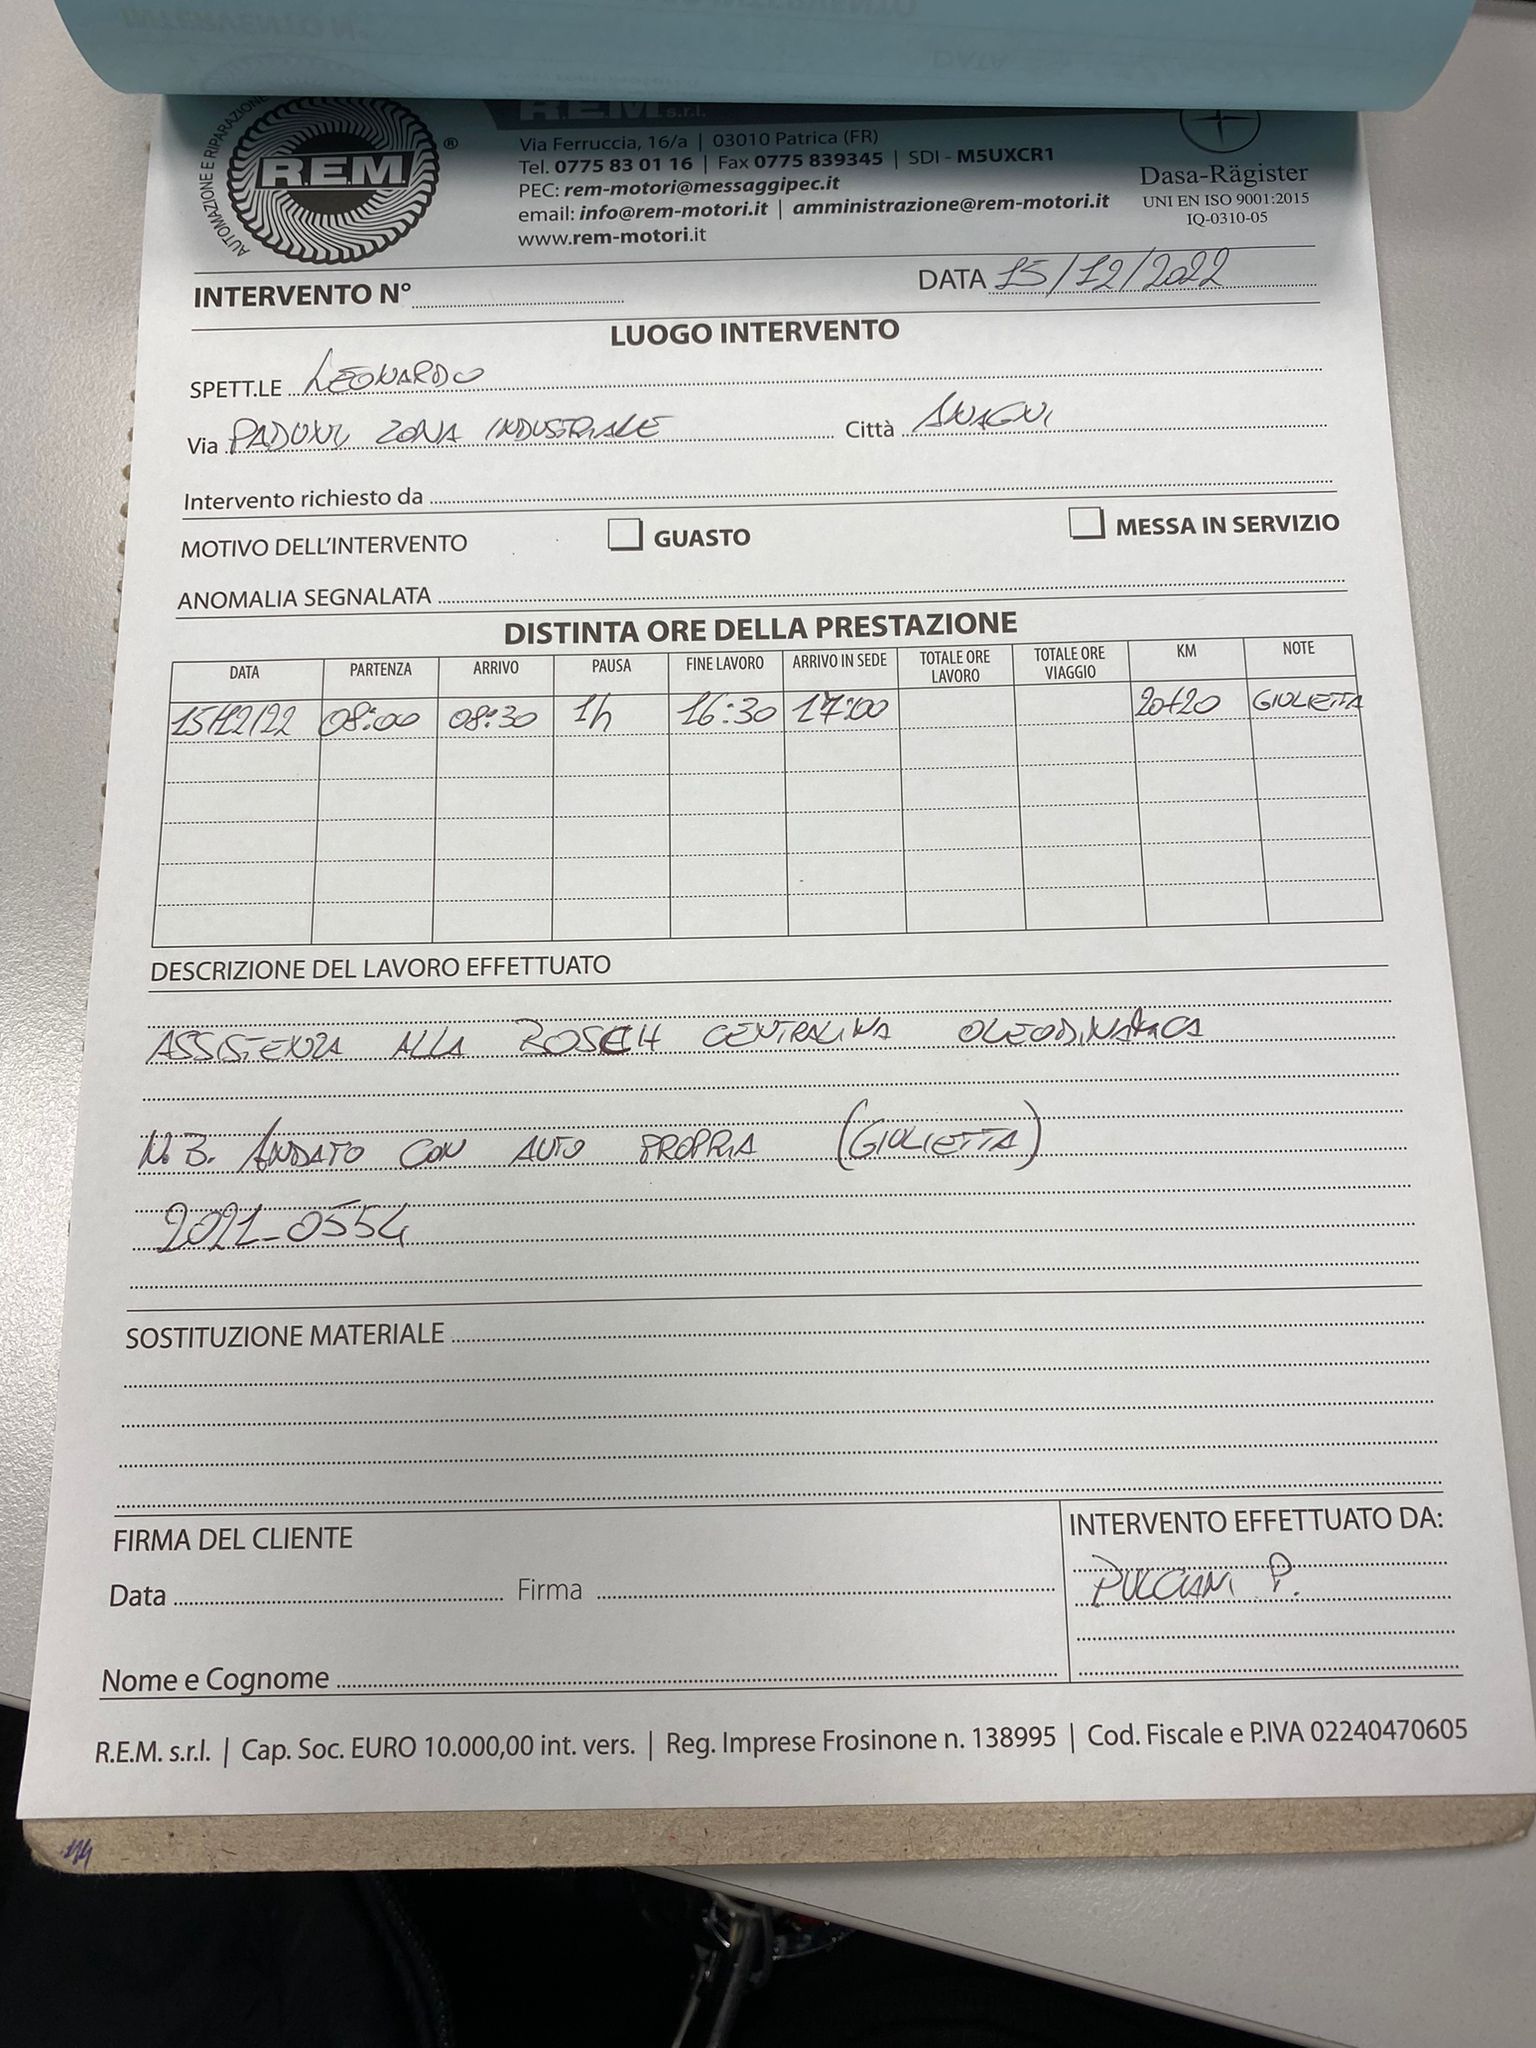 AUTOMAZIONE E RIPARAZIONE
R.E.M. ®
R.E.M. s.r.l.
Via Ferruccia, 16/a | 03010 Patrica (FR)
Tel. 0775 83 01 16 | Fax 0775 839345 | SDI - M5UXCR1
PEC: rem-motori@messaggipec.it
email: info@rem-motori.it | amministrazione@rem-motori.it
www.rem-motori.it
Dasa-Rägister
UNI EN ISO 9001:2015
IQ-0310-05
INTERVENTO N° DATA 15/12/2022
LUOGO INTERVENTO
SPETT.LE LEONARDO
Via PADUNI ZONA INDUSTRIALE Città ANAGNI
Intervento richiesto da
MOTIVO DELL'INTERVENTO GUASTO MESSA IN SERVIZIO
ANOMALIA SEGNALATA
DISTINTA ORE DELLA PRESTAZIONE
DATA PARTENZA ARRIVO PAUSA FINE LAVORO ARRIVO IN SEDE TOTALE ORE LAVORO TOTALE ORE VIAGGIO KM NOTE
15/12/22 08:00 08:30 1h 16:30 17:00 20+20 GIULIETTA
DESCRIZIONE DEL LAVORO EFFETTUATO
ASSISTENZA ALLA BOSCH CENTRALINA OLEODINAMICA
N.B. ANDATO CON AUTO PROPRIA (GIULIETTA)
2021-0554
SOSTITUZIONE MATERIALE
FIRMA DEL CLIENTE
Data Firma
Nome e Cognome
INTERVENTO EFFETTUATO DA:
PULCIANI P.
R.E.M. s.r.l. | Cap. Soc. EURO 10.000,00 int. vers. | Reg. Imprese Frosinone n. 138995 | Cod. Fiscale e P.IVA 02240470605